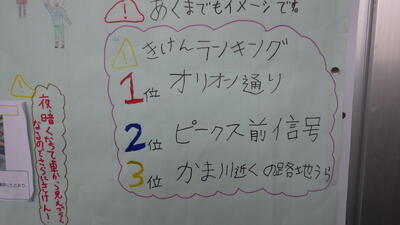 あくまでもイメージです。
きけんランキング
1位 オリオン通り
2位 ピークス前信号
3位 かま川近くの路地うら
夜、暗くなって車から見えなく
なるのでさらにきけん!